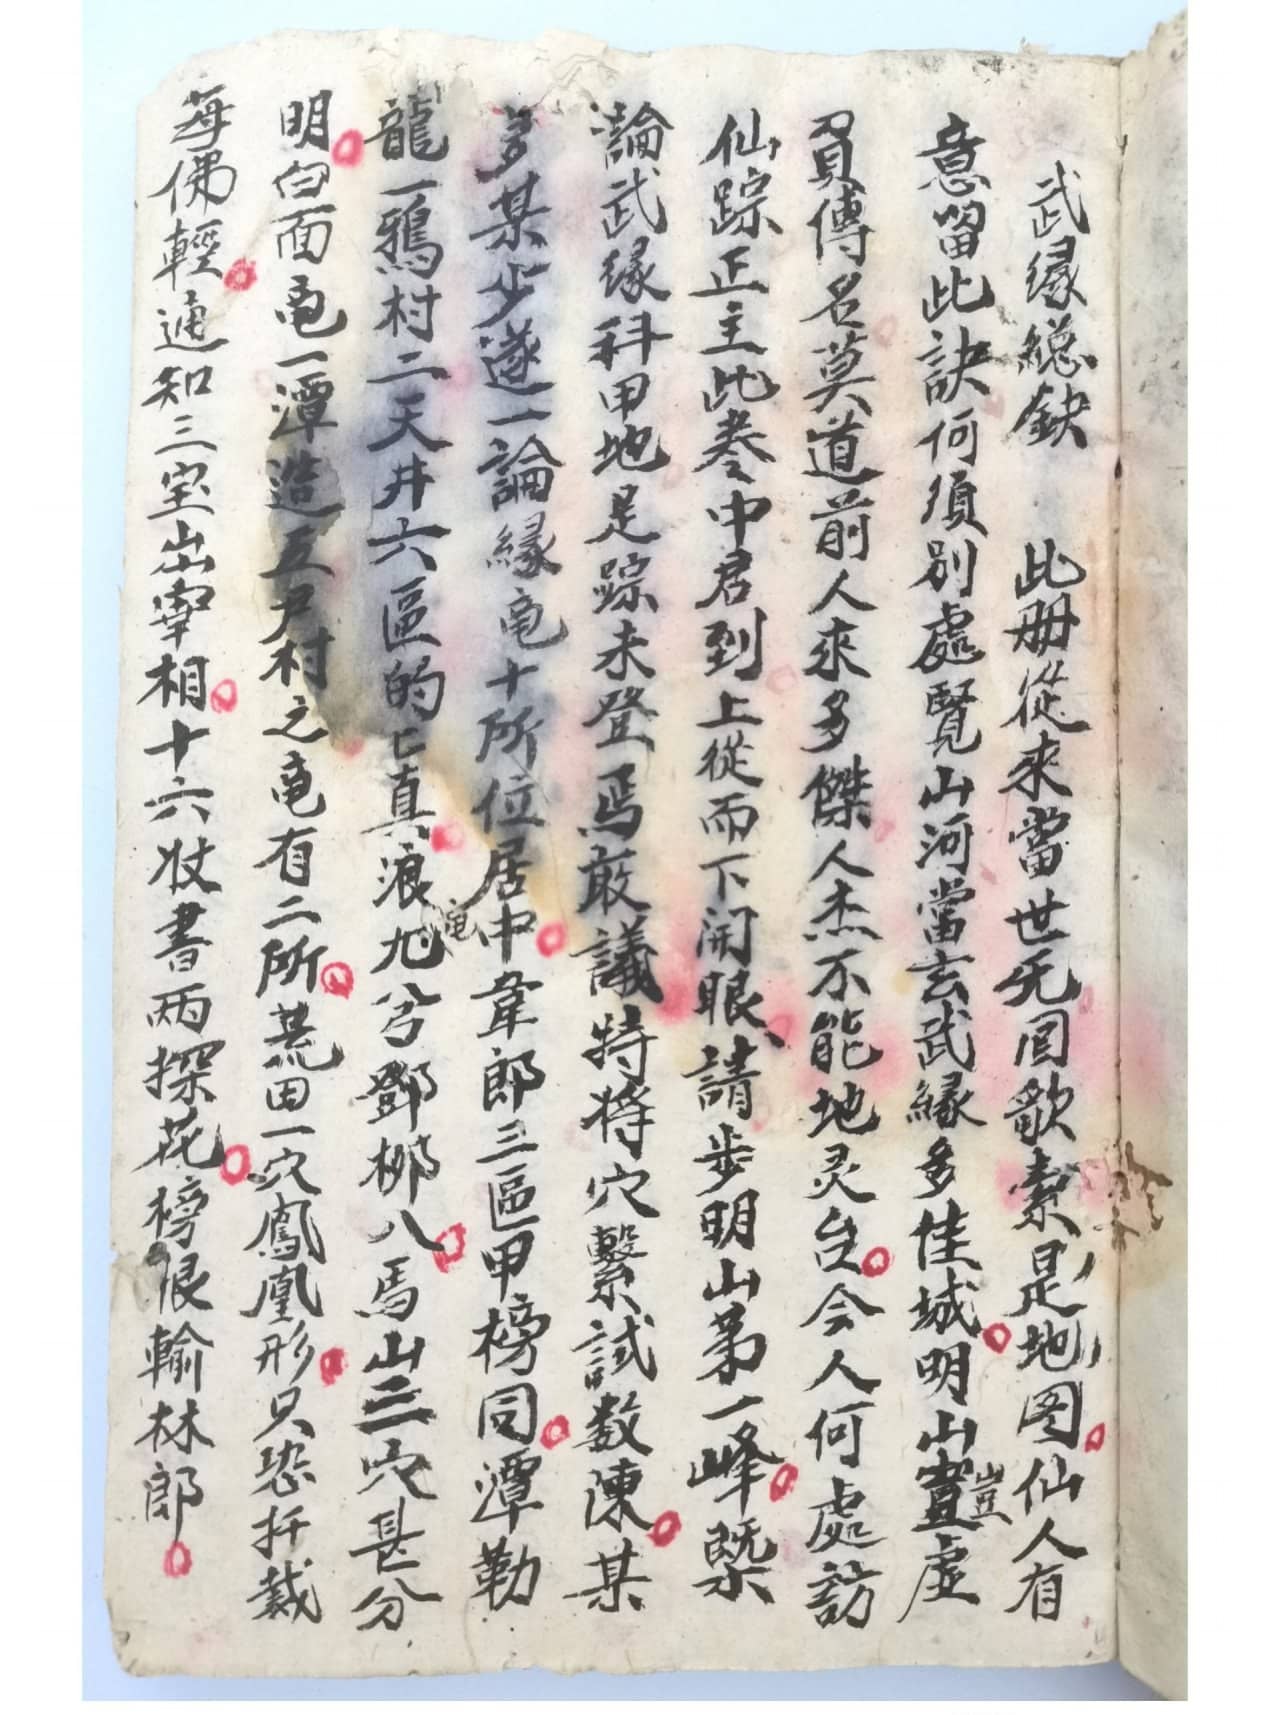 武縁總鈌　此册從來當世无囙歌索是地图仙人有
意畄此訣何須别處覽山河當玄武縁多佳城明山豈虗
負傳名莫道前人來多傑人杰不能地灵台今人何處訪
仙踪正主此巻中君到上從而下開眼請步明山第一峰既
論武縁科甲地足踪未登焉敢議特将穴繫試数陳某
多某少遂一論縁黾十所位居中韋郎三區甲榜同潭勒
龍一鴉村二天井六區的七真浪黾九兮鄧柳八馬山三穴甚分
明白面黾一潭造五尹村之黾有二所荒田一穴鳳凰形只恐扦裁
每佛輕通知三宝出宰相十六状書兩探花榜恨輸林郎